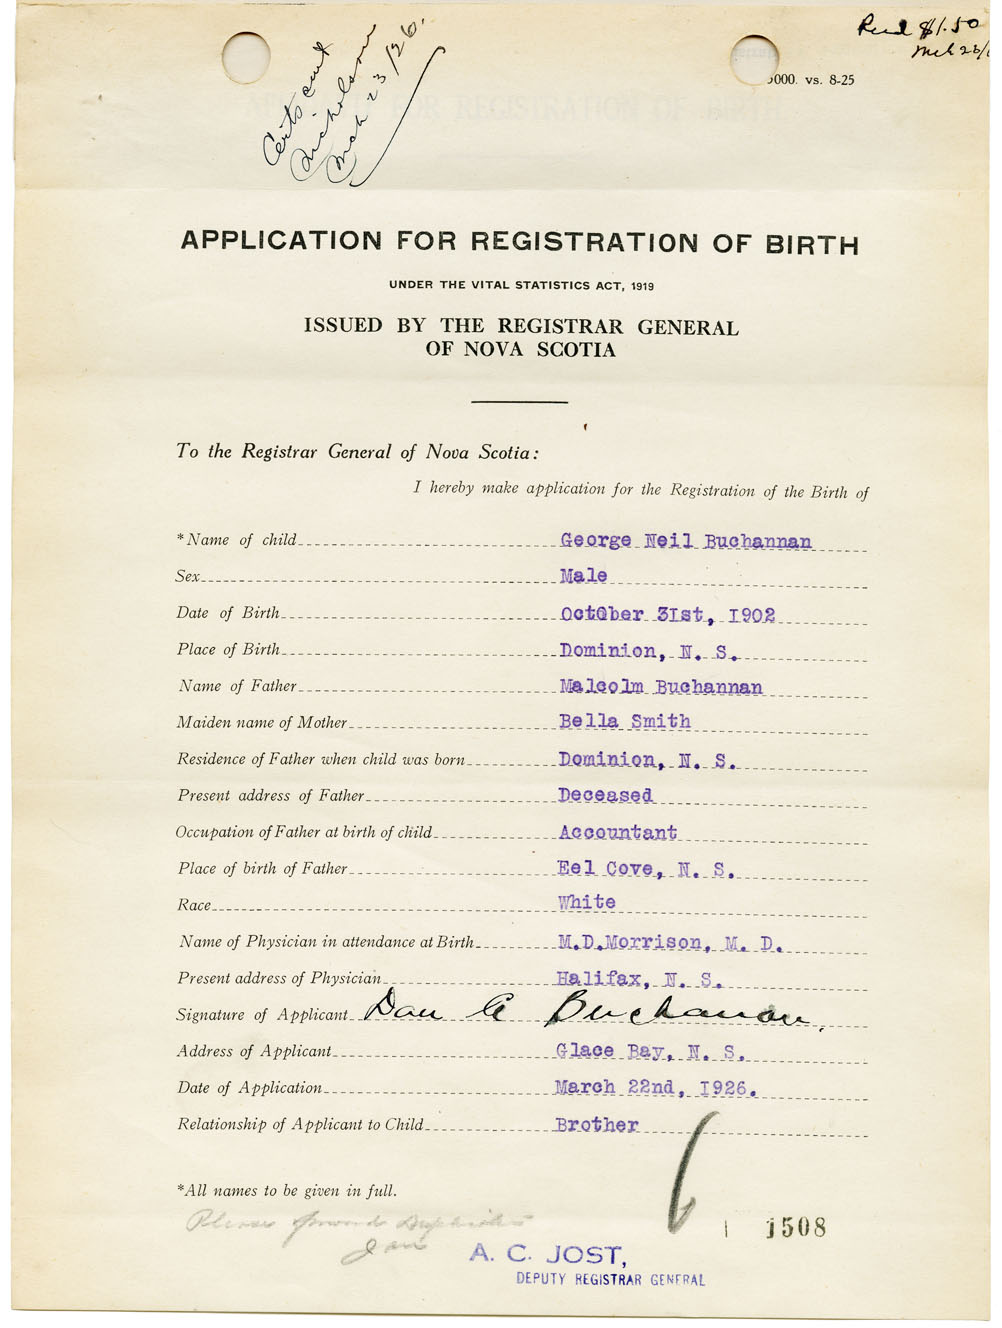 Rec'd $1.50
Mch 23/
Certs sent
Nicholson
Mch 23/26.
000. vs. 8-25
APPLICATION FOR REGISTRATION OF BIRTH
UNDER THE VITAL STATISTICS ACT, 1919
ISSUED BY THE REGISTRAR GENERAL
OF NOVA SCOTIA
To the Registrar General of Nova Scotia:
I hereby make application for the Registration of the Birth of
*Name of child George Neil Buchannan
Sex Male
Date of Birth OctOber 3Ist, I902
Place of Birth Dominion, N. S.
Name of Father Malcolm Buchannan
Maiden name of Mother Bella Smith
Residence of Father when child was born Dominion, N. S.
Present address of Father Deceased
Occupation of Father at birth of child Accountant
Place of birth of Father Eel Cove, N. S.
Race White
Name of Physician in attendance at Birth M.D.Morrison, M. D.
Present address of Physician Halifax, N. S.
Signature of Applicant Dan A Buchanan.
Address of Applicant Glace Bay, N. S.
Date of Application March 22nd, I926.
Relationship of Applicant to Child Brother
*All names to be given in full.
Please
1508
A. C. JOST,
DEPUTY REGISTRAR GENERAL